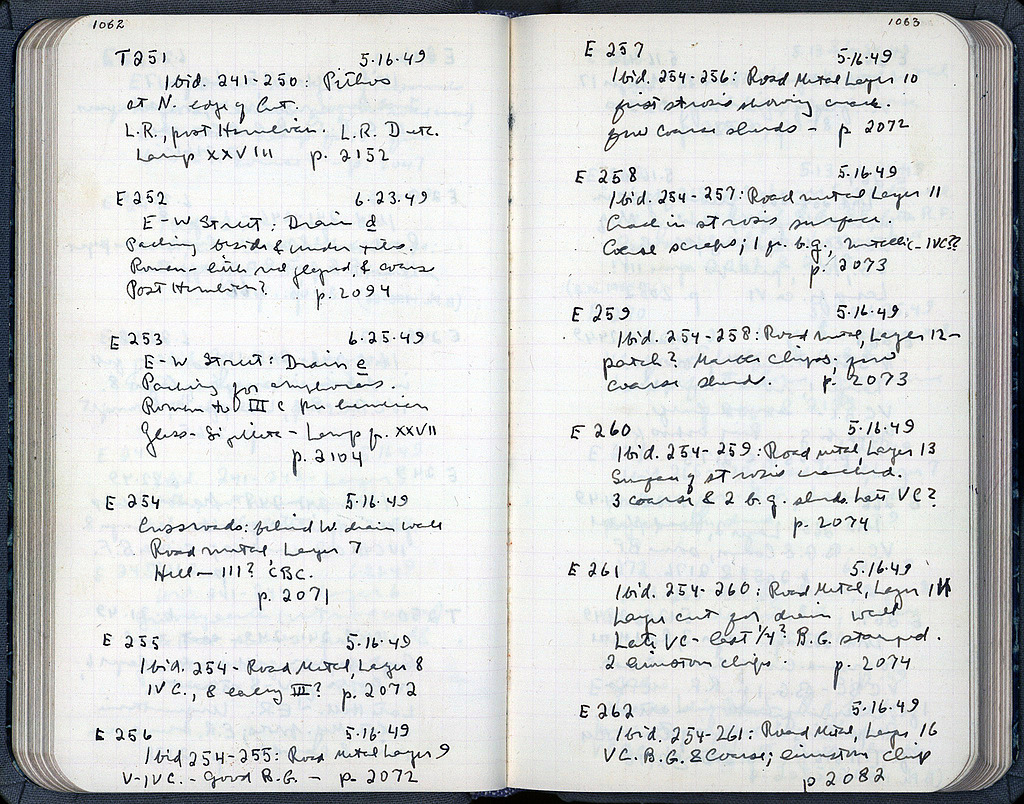 1062
T 251 5.16.49
Ibid. 241-250: Pithos
at N. edge of Cut.
L.R., post Herulian. L.R. Dutc.
Lamp XXVIII p. 2152
E 252 6.23.49
E-W Street: Drain d
Packing beside & under tiles.
Roman - little red glazed, & coarse
Post Herulian? p. 2094
E 253 6.25.49
E-W Street: Drain e
Packing for
Roman to III c
Glass - Sigillata - Lamp fr. XXVII
p. 2104
E 254 5.16.49
Crossroads: behind W. drain wall
Road metal Layer 7
Hell - III? C BC.
p. 2071
E 255 5.16.49
Ibid. 254 - Road Metal, Layer 8
IV C., & early III? p. 2072
E 256 5.16.49
Ibid 254-255: Road Metal Layer 9
V-IV C. - Good B.G. - p. 2072
1063
E 257 5.16.49
Ibid. 254-256: Road Metal Layer 10
first strosis showing crack.
few coarse sherds - p 2072
E 258 5.16.49
Ibid. 254-257: Road metal Layer 11
Crack in strosis surface.
Coarse scraps; 1 fr. b.g., metallic - IVC??
p. 2073
E 259 5.16.49
Ibid. 254-258: Road Metal, Layer 12-
patch? Marble chips; few
coarse sherd. p. 2073
E 260 5.16.49
Ibid. 254-259: Road metal, Layer 13
Surface of strosis cracked.
3 coarse & 2 b.g. sherds. Late V C?
p. 2074
E 261 5.16.49
Ibid. 254-260: Road Metal, Layer
Layer cut for drain wall
Late VC - last 1/4? B.G. stamped.
2 limestone chips. p. 2074
E 262 5.16.49
Ibid. 254-261: Road Metal, Layer 16
VC. B.G. & Coarse; limestone chip
p 2082